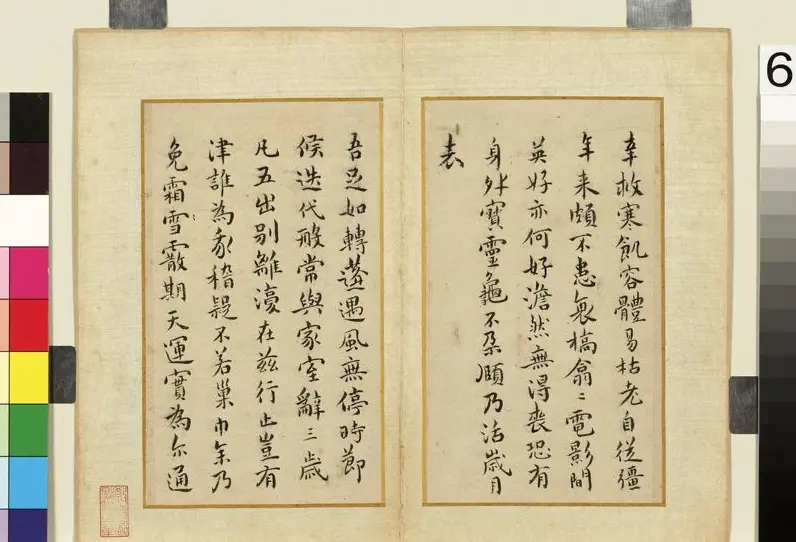 幸救寒飢容體易枯老自從彊
年来頗不患衰槁翕〻電影間
英好亦何好澹然無得喪恐有
身外寶靈龜不朶頤乃活歲月
表
吾足如轉蓬遇風無停時節
候迭代般常與家室辭三歲
凡五出別離濅在兹行止豈有
津誰為我稽疑不若巢巾年乃
免霜雪霰期天運實為尓通
6